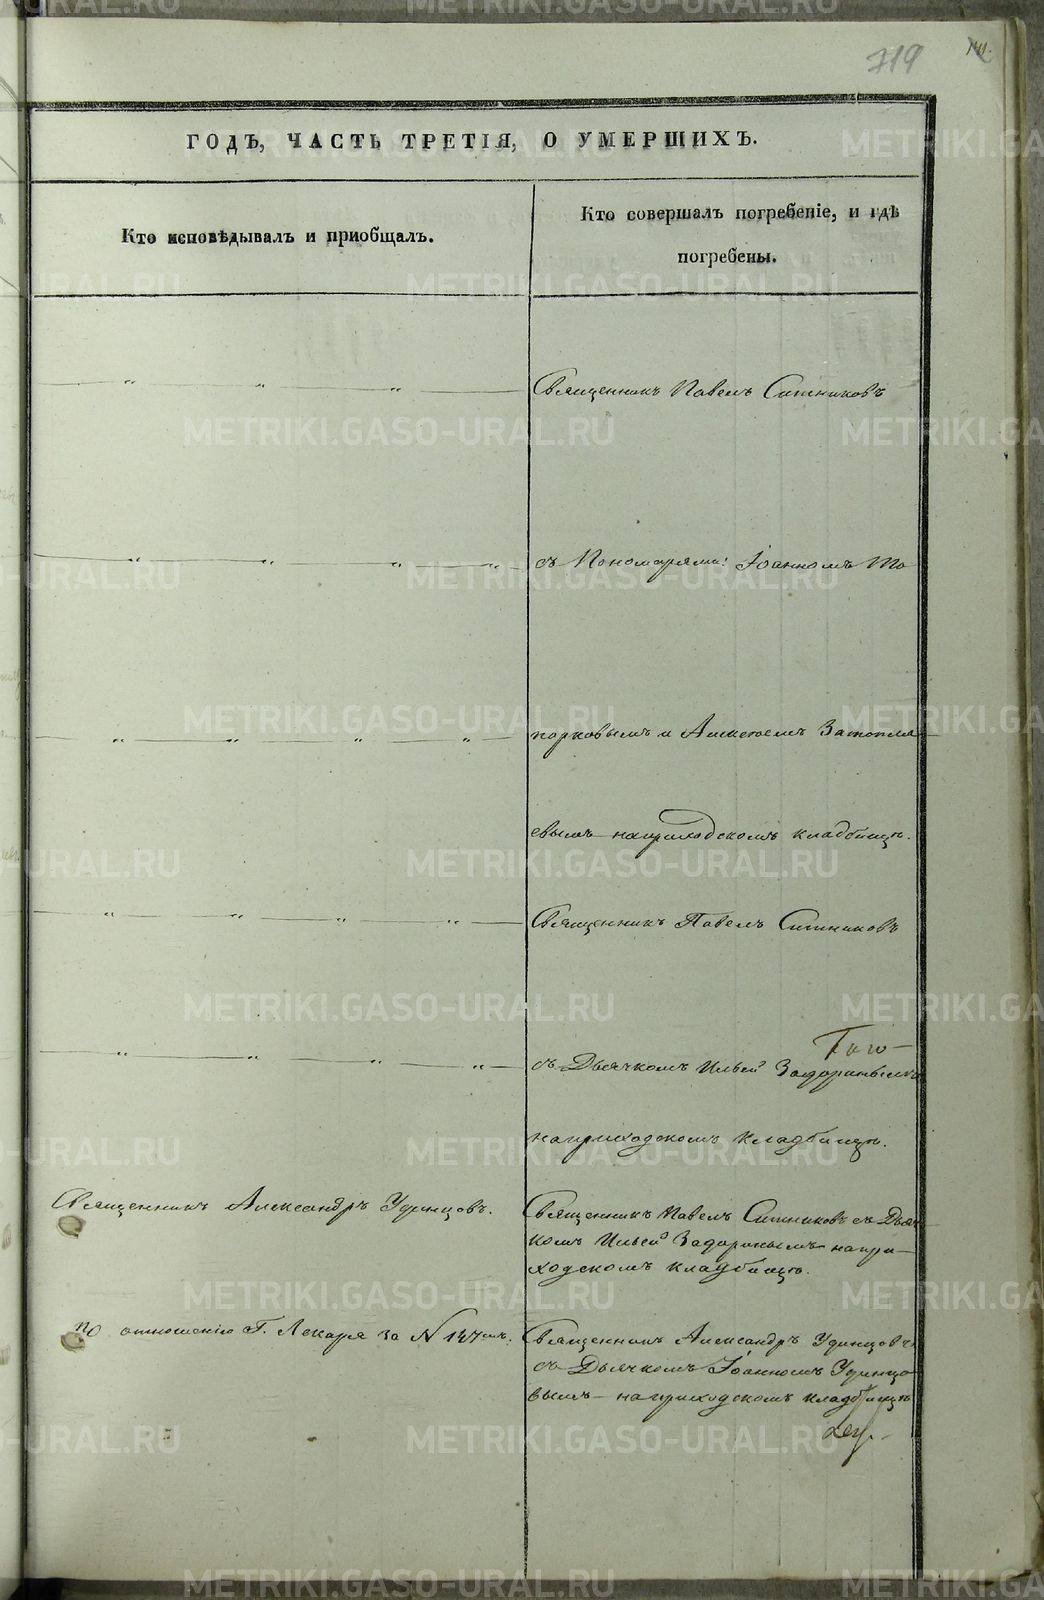 719
ГОДЪ, ЧАСТЬ ТРЕТІЯ, О УМЕРШИХЪ.
Кто исповѣдывалъ и приобщалъ.
Кто совершалъ погребеніе, и гдѣ
погребены.
Священникъ Павелъ Ситниковъ
съ Пономарями: Іоанномъ То
порковымъ и Алексѣемъ Затопля
евымъ на приходскомъ кладбищѣ.
Священникъ Павелъ Ситниковъ
съ Дьячкомъ Ильей Задоринымъ
на приходскомъ кладбищѣ.
Священникъ Александръ Удинцовъ.
Священникъ Павелъ Ситниковъ съ Дьяч
комъ Ильей Задоринымъ на при-
ходскомъ кладбищѣ.
По отношенію Г. Лекаря за №
Священникъ Александръ Удинцовъ
съ Дьячкомъ Іоанномъ Удинцо
вымъ на приходскомъ кладбищѣ
METRIKI.GASO-URAL.RU